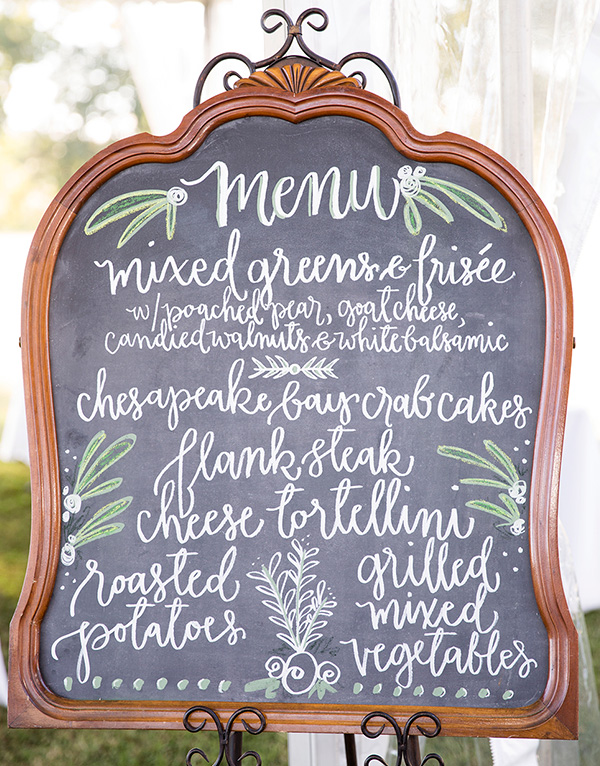 menu
mixed greens & frisée
w/ poached pear, goat cheese,
candied walnuts & white balsamic
chesapeake bay crab cakes
flank steak
cheese tortellini
roasted
potatoes
grilled
mixed
vegetables